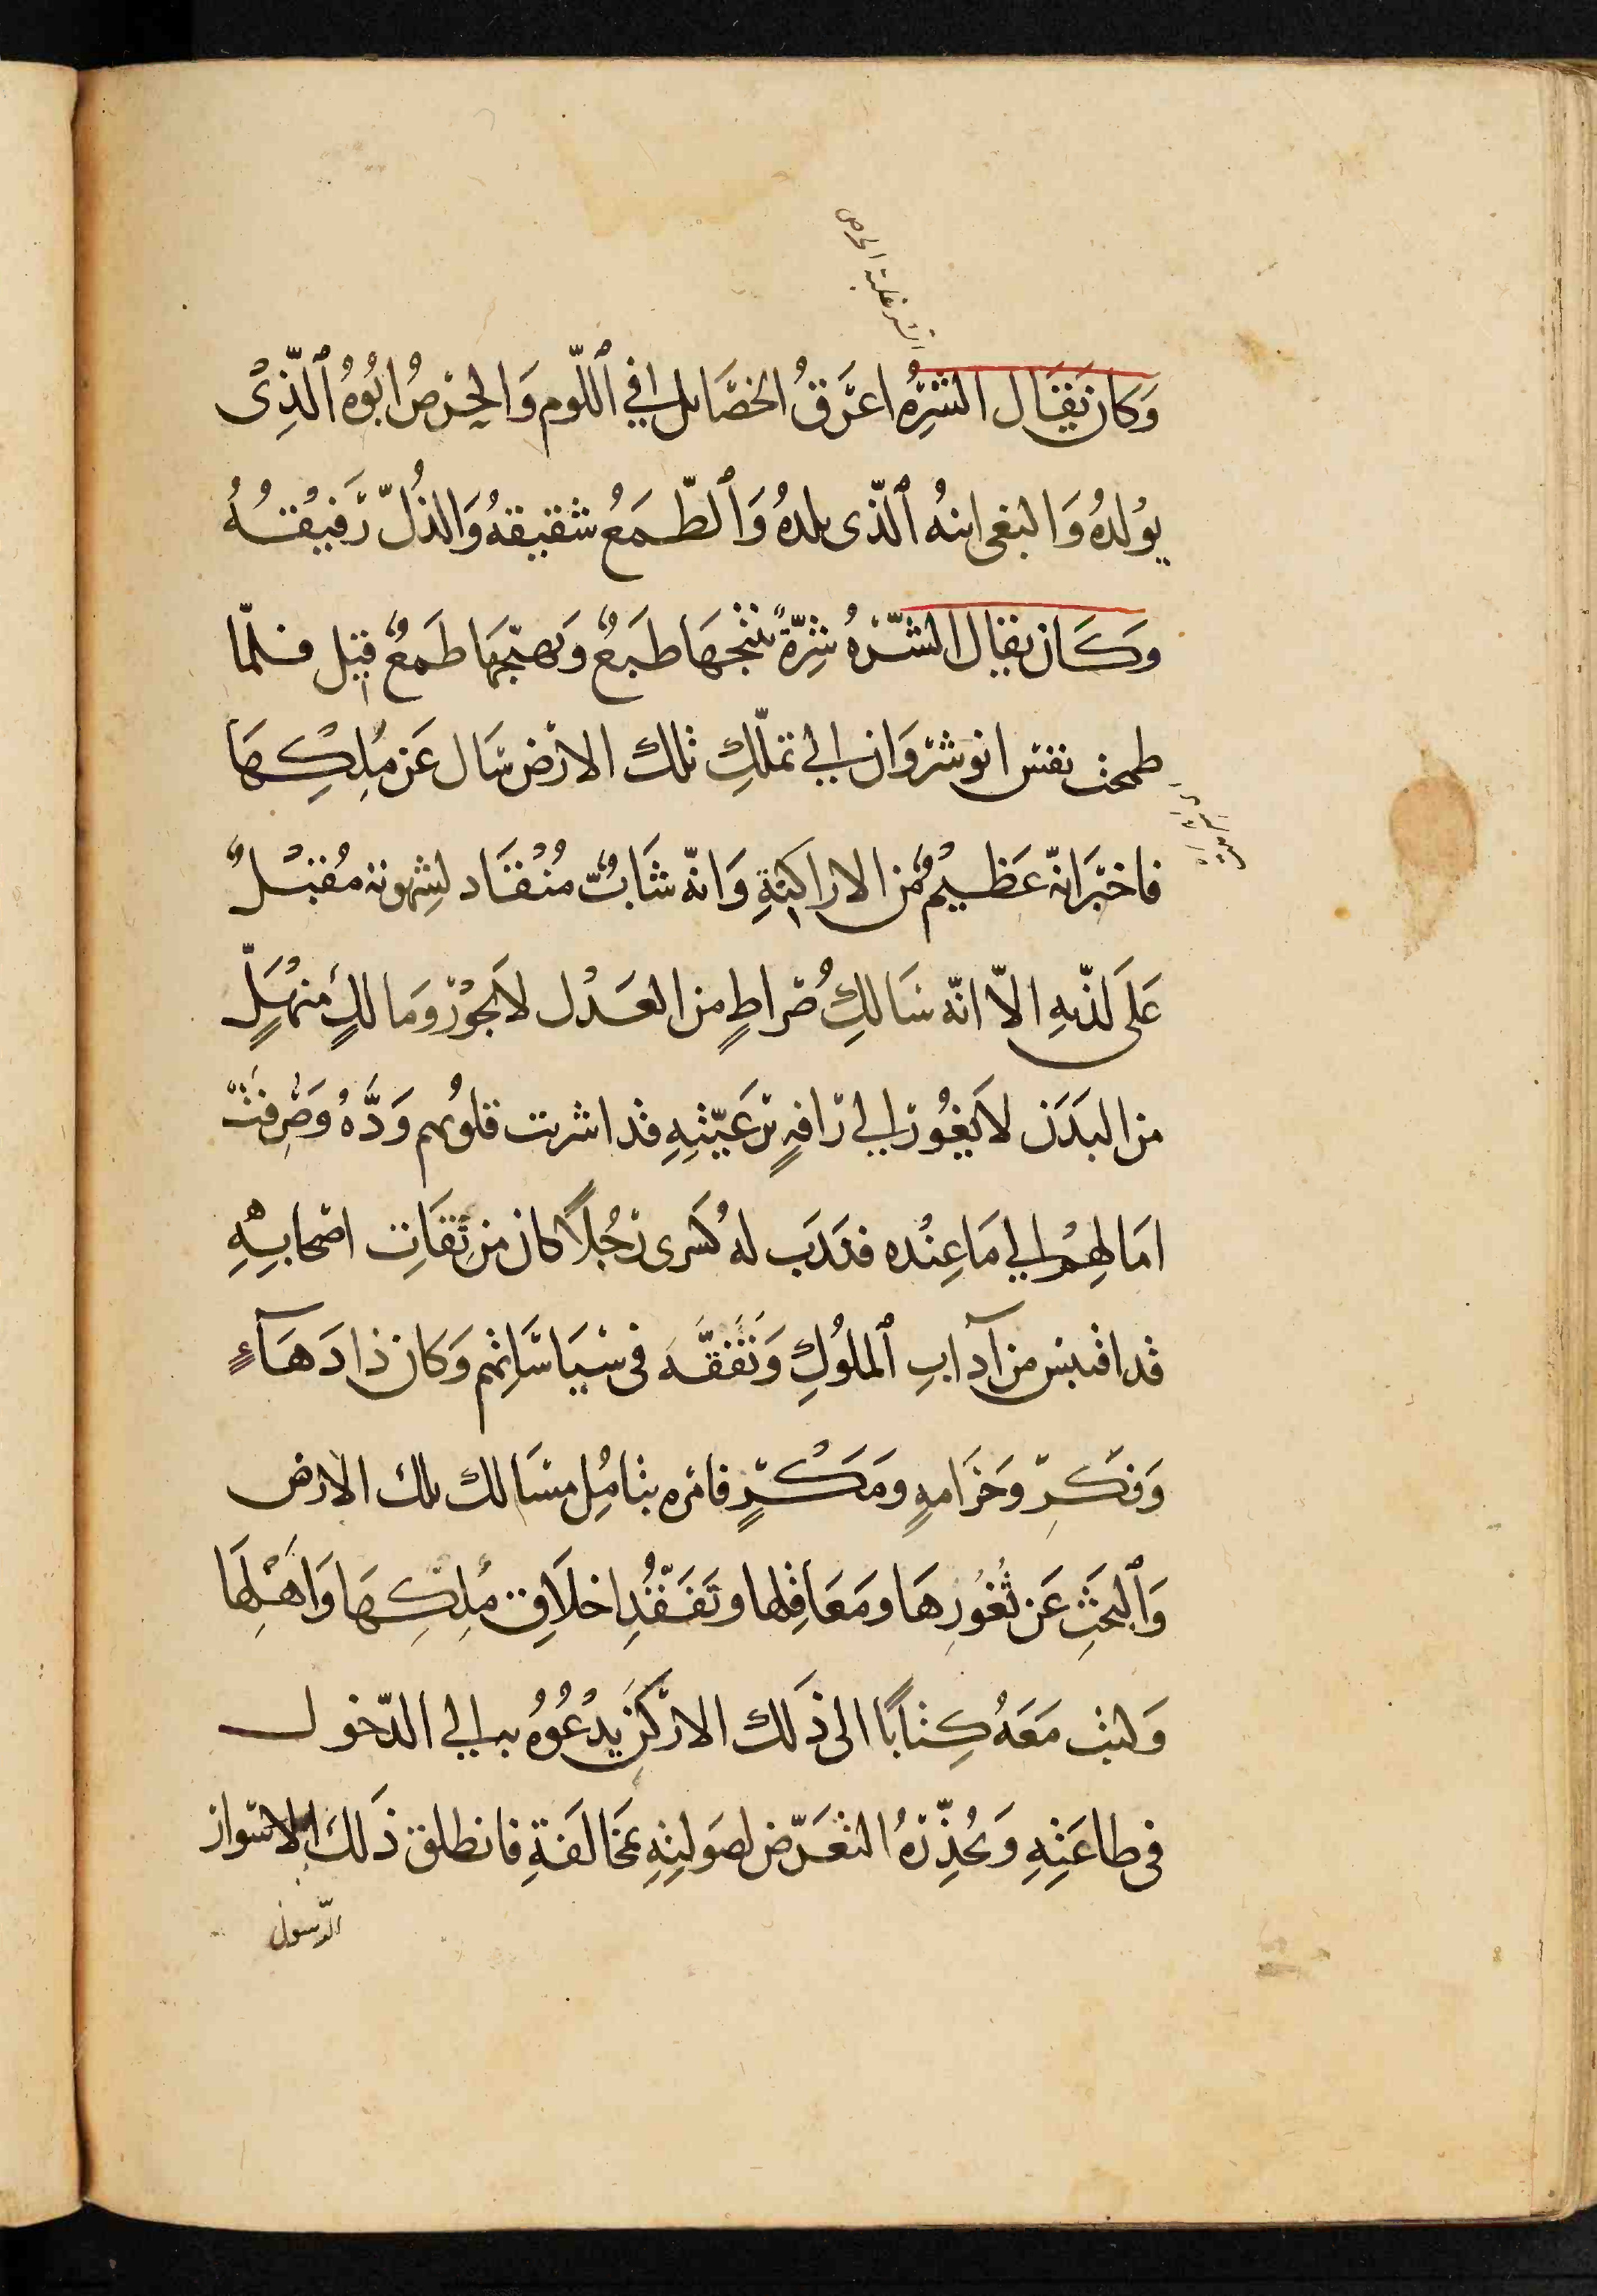 الشره غلبة الحرص
وَكان يقَال الشَّرِهُ اعرَقُ الخصَايل في ٱللّوم وَالحِرْصُ ابُوهُ ٱلذِىْ
يوْلدُهُ وَالبغى ابنهُ ٱلذّى يلدهُ وَٱلطّمَعُ شقيقهُ وَالذُلّ رَفيْقـُهُ
وَكَان يقال الشّرَهُ شِرّةٌ ينتجهَا طبَعٌ وَتهيّجهَا طمَعٌ قيل فلمّا
طمحت نفس انوشروَان الي تملّكِ تلك الارْض سَال عَن مَلِكِهَا
فاخبَر انّه عَظيْمٌ مّن الاراكنةِ وَانّه شَابٌّ مُنْقَاد لِشهوته مُقبْلٌ
عَلى لذّتهِ الاّ انّه سَالِكُ صْراطٍ من العَدْل لاَ يجوْر وَمالكٍ منهَلٍّ
من البَدَن لاَ يغُور الي رَافةٍ برَعيّتهِ قد اشربت قلوُبهم وَدَّهُ وَصُرِفَتْ
امَالهمُ الي مَا عِنْده فندَبَ لهُ كسْرى رَجُلاً كان مِن ثقَاتِ اصْحابهِ
قد اقتبس من آدابِ ٱلملُوكِ وَتَفقّـَهَ فى سْيَاسَاتهم وَكان ذا دَهَآءٍ
وَفكرٍ وَحزَامهٍ وَمَكْرٍ فامَره بتامُلِ مسَالك تلك الارض
وَٱلبحَثِ عَن ثُغُورهَا وَمَعَاقِلها وَتَفَقّدِ اخلاَقِ مَلِكِهَا وَاهْلِهَا
وَكتب مَعَهُ كِتاباً الى ذَلك الارْكنَ يدْعُوْهُ به الي الدّخول
فى طاعَتِهِ وَيحُذّرهُ التعَرّض لصَولتِهِ بمخَالفَتهِ فانطلق ذَلكَ الاسْوار
الرّسول